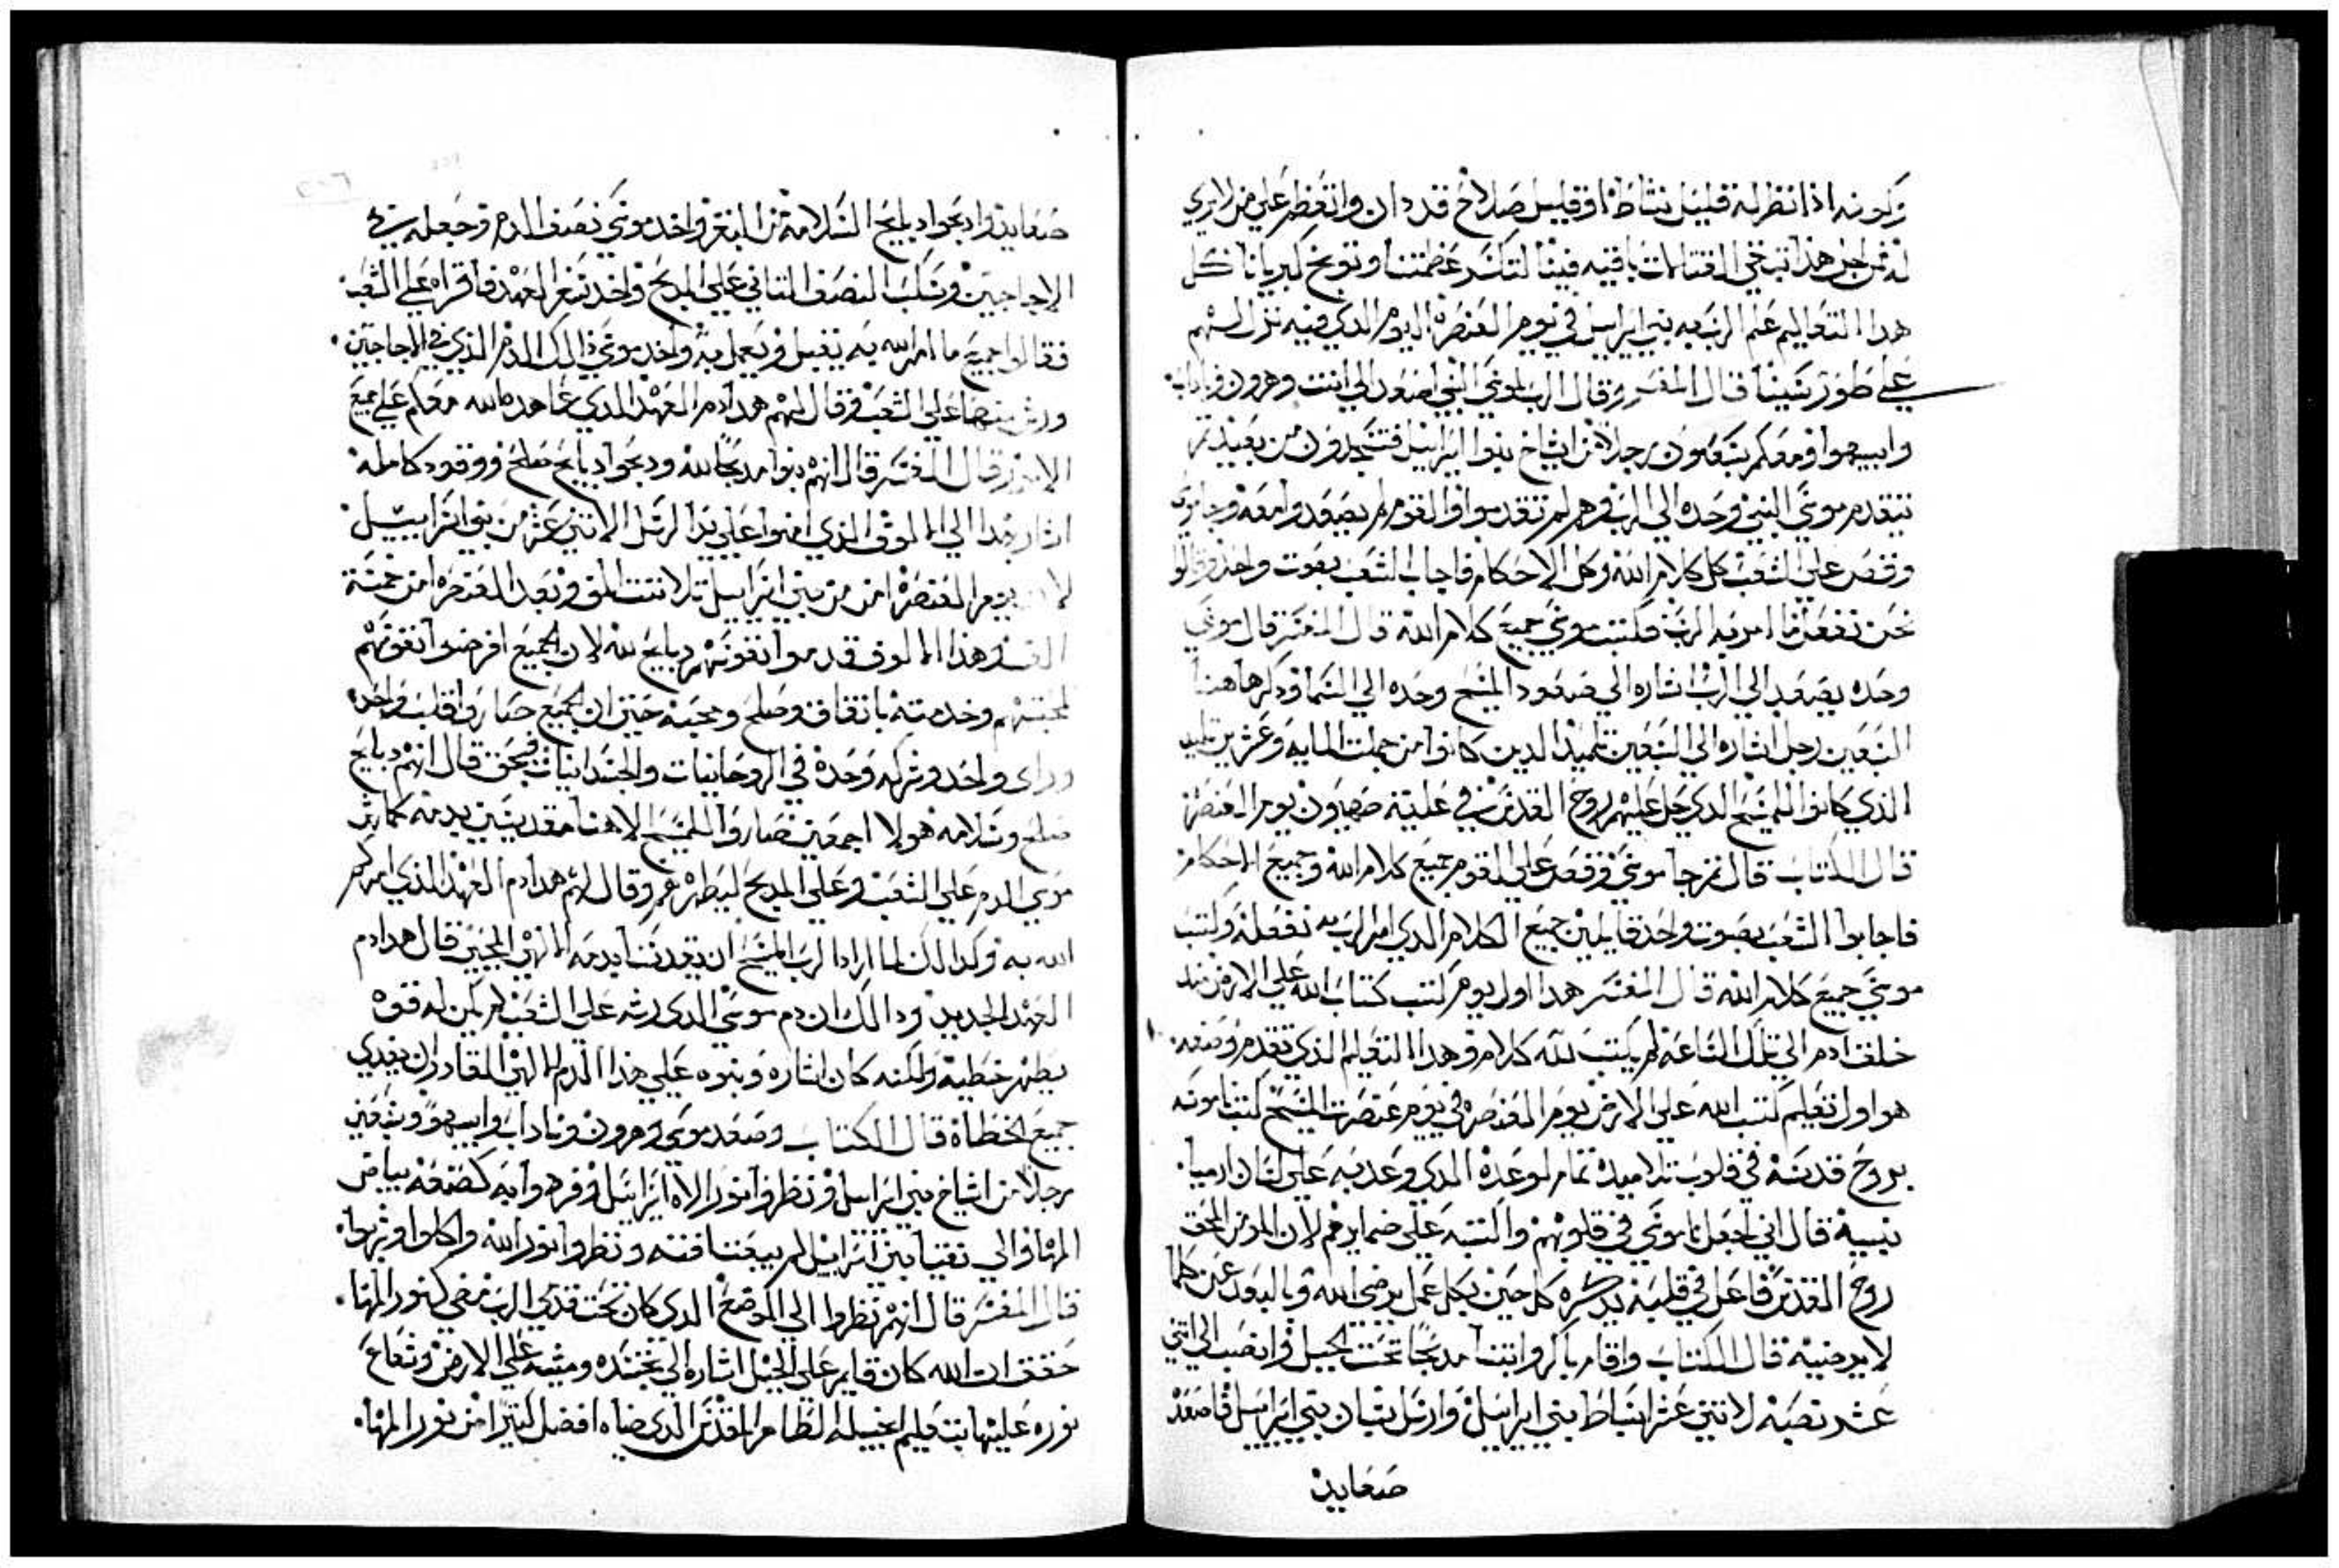 وكونه اذا نظر له قليل نشاط او قليل صلاح قد دان واتعظم علي من لا يري
له فمن اجل هذا تبقي القتالات باقيه فينا لتكسر عظمتنا وتوبخ كبريانا كل
هدا التعاليم علم الرب به بني ايراييل في يوم العنصرة اليوم الدي فيه نزل اليهم
علي طور سينا قال المفسر وقال الرب لموسي النبي اصعد الي انت وهرون وناداب
وابيهوا ومعكم سبعون رجلا من اشياخ بنوا ايراييل فتسجدون من بعيد تم
يتقدم موسي النبي وحده الي الرب وهم لم يتقدموا والقوم لم يصعدوا معه وجا موسي
وقص علي الشعب كل كلام الله وكل الاحكام فاجاب الشعب بصوت واحد وقالوا
نحن نفعل ما امر به الرب فكتب موسي جميع كلام الله قال المفسر قال موسي
وحده يصعد الي الرب اشاره الي صعود المسيح وحده الي السما ودكر هاهنا
السبعين رجل اشاره الي السبعين تلميد الدين كانوا من جملت المايه وعشرين تلميد
الذي كانوا للمسيح الدي حل عليهم روح القدس في علية صهيون يوم العنصرة
قال الكتاب قال تم جا موسي وقص علي القوم جميع كلام الله وجميع الاحكام
فاجابوا الشعب بصوت واحد قايلين جميع الكلام الدي امر الرب به نفعله وكتب
موسي جميع كلام الله قال المفسر هدا اول يوم كتب كتاب الله علي الارض مند
خلق ادم الي تلك الساعه لم يكتب لله كلام وهدا التعليم الذي تقدم وصفه
هو اول تعليم كتب الله علي الارض يوم العنصره في يوم عنصرت المسيح كتب ناموسه
بروح قدسه في قلوب تلاميده تمام لوعده الدي وعد به علي لسان ارميا
نبيه قال اني اجعل ناموسي في قلوبهم واكتبه علي ضمايرهم لان المومن المحق
روح القدس فاعل في قلبه يدكره كل حين بكل عمل يرضي الله وبالبعد عن كلما
لا يرضيه قال الكتاب واقام باكر وابتنا مدبحا تحت الجبل وانصب الي اتني
عشر نصبه لاتني عشر اسباط بني ايراييل وارسل شبان بني ايراييل فاصعد
صعايد
صعايد وادبحوا دبايح السلامه من البقر واخد موسي نصف الدم وجعله في
الاجاجين وسكب النصف التاني علي المدبح واخد سفر العهد فاقراه علي الشعب
فقالوا جميع ما امر الله به نقبل ونعمل به واخد موسي ذالك الدم الذي في الاجاجين
ورش منها علي الشعب وقال لهم هدا دم العهد الدي عاهده الله معكم علي جميع
قال المفسر قال انهم بنوا مدبحا لله ودبحوا دبايح صلح ووقود كامله
الي الالوف الذي امنوا علي يد الرسل الاتني عشر من بنوا ايراييل
لان يوم العنصرة امن من بني ايراييل تلاتت الف وبعد العنصره امن خمسة
الف وهذا الالوف قدموا نفوسهم دبايح لله لان الجميع افرضوا نفوسهم
لمحبته وخدمته باتفاق وصلح ومحبة حتي ان الجميع صاروا قلب واحد
وراي واحد وشركه وحدة في الروحانيات والجسدانيات فبحق قال انهم دبايح
صلح وسلامه هولا اجمعين صاروا للمسيح الاهنا مقدسين بدمه كما رش
موسي الدم علي الشعب وعلي المدبح ليطهرهم وقال لهم هدا دم العهد الذي امركم
الله به وكدالك لما اراد الرب المسيح ان يقدسنا بدمه الالهي المحيي قال هدا دم
العهد الجديد ودالك ان دم موسي الدي رشه علي الشعب لم يكن له قوه
يطهر خطيه ولكنه كان اشاره ونبوه علي هذا الدم الالهي القادر ان يفدي
جميع الخطاة قال الكتاب وصعد موسي وهرون وناداب وابيهوا وسبعين
رجلا من اشياخ بني ايراييل ونظروا نور الاه ايراييل وفرهوابه كصنعة بياض
المها والي نقيا بني ايراييل لم يبغتنا فتنه ونظروا نور الله واكلوا وشربوا
قال المفسر قال انهم نظروا الي الموضع الدي كان تحت قدمي الرب مضي كنور المها
حقق ان الله كان قايم علي الجبل اشاره الي تجسده ومشيه علي الارض وشعاع
نوره عليها بتعليم انجيله الطاهر المقدس الدي ضياه افضل كتيرا من نور المها